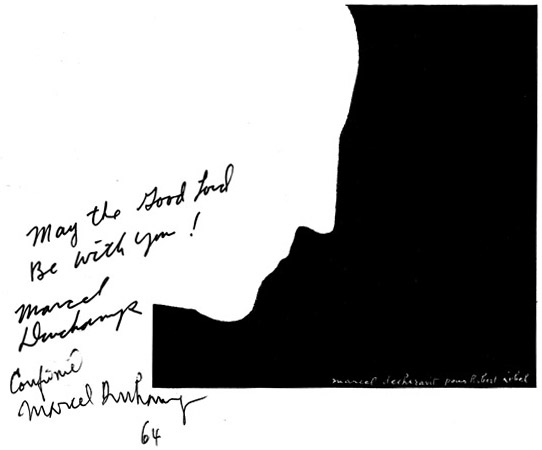 May the Good Lord
Be with you !
Marcel
Duchamp
Confirmé
Marcel Duchamp
64
marcel dechiravit pour Robert Lebel